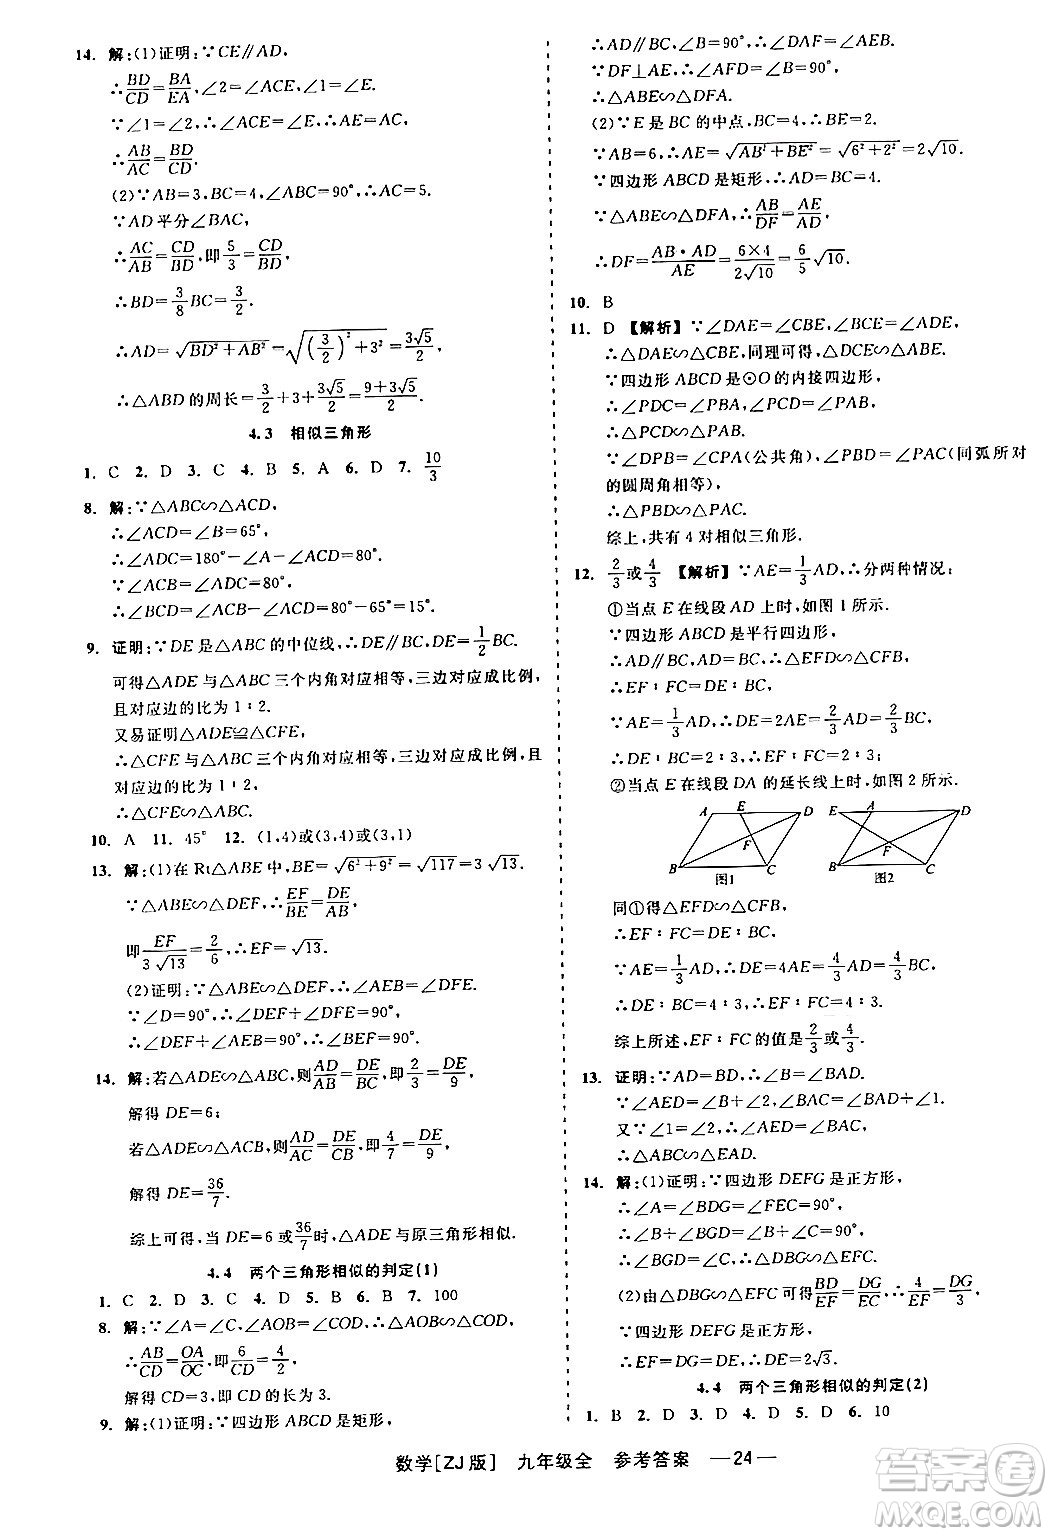 14. 解:(1)证明:∵CE∥AD,
∴BD/CD=BA/EA,∠2=∠ACE,∠1=∠E.
∵∠1=∠2,∴∠ACE=∠E,∴AE=AC,
∴AB/AC=BD/CD.
(2)∵AB=3,BC=4,∠ABC=90°,∴AC=5.
∵AD平分∠BAC,
∴AC/AB=CD/BD,即5/3=CD/BD,
∴BD=3/8BC=3/2.
∴AD=√(BD²+AB²)=√((3/2)²+3²)=3√5/2.
∴△ABD的周长=3/2+3+3√5/2=(9+3√5)/2.
4.3 相似三角形
1. C 2. D 3. C 4. B 5. A 6. D 7. 10/3
8. 解:∵△ABC∽△ACD,
∴∠ACD=∠B=65°,
∴∠ADC=180°-∠A-∠ACD=80°.
∴∠ACB=∠ADC=80°,
∴∠BCD=∠ACB-∠ACD=80°-65°=15°.
9. 证明:∵DE是△ABC的中位线,∴DE∥BC,DE=1/2BC.
可得△ADE与△ABC三个内角对应相等,三边对应成比例,
且对应边的比为1∶2.
又易证明△ADE≌△CFE,
∴△CFE与△ABC三个内角对应相等,三边对应成比例,且
对应边的比为1∶2,
∴△CFE∽△ABC.
10. A 11. 45° 12. (1,4)或(3,4)或(3,1)
13. 解:(1)在Rt△ABE中,BE=√(6²+9²)=√117=3√13.
∵△ABE∽△DEF,∴EF/BE=DE/AB,
即EF/(3√13)=2/6,∴EF=√13.
(2)证明:∵△ABE∽△DEF,∴∠AEB=∠DFE.
∵∠D=90°,∴∠DEF+∠DFE=90°,
∴∠DEF+∠AEB=90°,∴∠BEF=90°.
14. 解:若△ADE∽△ABC,则AD/AB=DE/BC,即2/3=DE/9,
解得DE=6;
若△ADE∽△ACB,则AD/AC=DE/CB,即4/7=DE/9,
解得DE=36/7.
综上可得,当DE=6或36/7时,△ADE与原三角形相似.
4.4 两个三角形相似的判定(1)
1. C 2. D 3. C 4. D 5. B 6. D 7. 100
8. 解:∵∠A=∠C,∠AOB=∠COD,∴△AOB∽△COD,
∴AB/CD=OA/OC,∴6/CD=4/2,
解得CD=3,即CD的长为3.
9. 解:(1)证明:∵四边形ABCD是矩形,
∴AD∥BC,∠B=90°,∴∠DAF=∠AEB.
∵DF⊥AE,∴∠AFD=∠B=90°,
∴△ABE∽△DFA.
(2)∵E是BC的中点,BC=4,∴BE=2.
∵AB=6,∴AE=√(AB²+BE²)=√(6²+2²)=2√10.
∵四边形ABCD是矩形,∴AD=BC=4.
∵△ABE∽△DFA,∴AB/DF=AE/AD,
∴DF=AB·AD/AE=6×4/(2√10)=6/5√10.
10. B
11. D 【解析】∵∠DAE=∠CBE,∠BCE=∠ADE,
∴△DAE∽△CBE,同理可得,△DCE∽△ABE.
∵四边形ABCD是⊙O的内接四边形,
∴∠PDC=∠PBA,∠PCD=∠PAB,
∴△PCD∽△PAB.
∵∠DPB=∠CPA(公共角),∠PBD=∠PAC(同弧所对
的圆周角相等),
∴△PBD∽△PAC.
综上,共有4对相似三角形.
12. 2/3或4/3 【解析】∵AE=1/3AD,∴分两种情况:
①当点E在线段AD上时,如图1所示.
∵四边形ABCD是平行四边形,
∴AD∥BC,AD=BC,∴△EFD∽△CFB,
∴EF∶FC=DE∶BC,
∵AE=1/3AD,∴DE=2AE=2/3AD=2/3BC,
∴DE∶BC=2∶3,∴EF∶FC=2∶3;
②当点E在线段DA的延长线上时,如图2所示.
A E D F B C 图1
E A D F B C 图2
同①得△EFD∽△CFB,
∴EF∶FC=DE∶BC,
∵AE=1/3AD,∴DE=4AE=4/3AD=4/3BC,
∴DE∶BC=4∶3,∴EF∶FC=4∶3.
综上所述,EF∶FC的值是2/3或4/3.
13. 证明:∵AD=BD,∴∠B=∠BAD.
∵∠AED=∠B+∠2,∠BAC=∠BAD+∠1,
又∵∠1=∠2,∴∠AED=∠BAC,
∴△ABC∽△EAD.
14. 解:(1)证明:∵四边形DEFG是正方形,
∴∠A=∠BDG=∠FEC=90°,
∴∠B+∠BGD=∠B+∠C=90°,
∴∠BGD=∠C,∴△DBG∽△EFC.
(2)由△DBG∽△EFC可得BD/EF=DG/EC,∴4/EF=DG/3,
∵四边形DEFG是正方形,
∴EF=DG=DE=2√3.
4.4 两个三角形相似的判定(2)
1. B 2. D 3. D 4. A 5. D 6. 10
数学[ZJ版] 九年级全 参考答案 —24—
答案圈
MXQE.COM